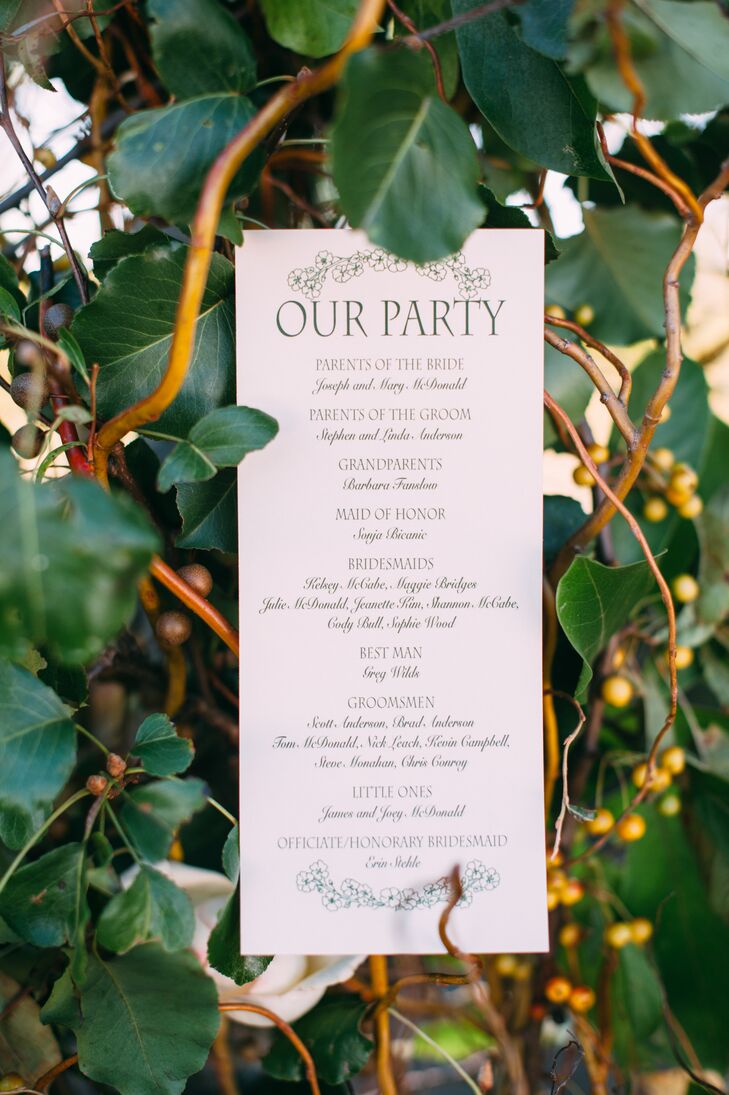 OUR PARTY
PARENTS OF THE BRIDE
Joseph and Mary McDonald
PARENTS OF THE GROOM
Stephen and Linda Anderson
GRANDPARENTS
Barbara Fanslow
MAID OF HONOR
Sonja Bicanic
BRIDESMAIDS
Kelsey McCabe, Maggie Bridges
Julie McDonald, Jeanette Kim, Shannon McCabe,
Cody Bull, Sophie Wood
BEST MAN
Greg Wilds
GROOMSMEN
Scott Anderson, Brad Anderson
Tom McDonald, Nick Leach, Kevin Campbell,
Steve Monahan, Chris Conroy
LITTLE ONES
James and Joey McDonald
OFFICIATE/HONORARY BRIDESMAID
Erin Stehle